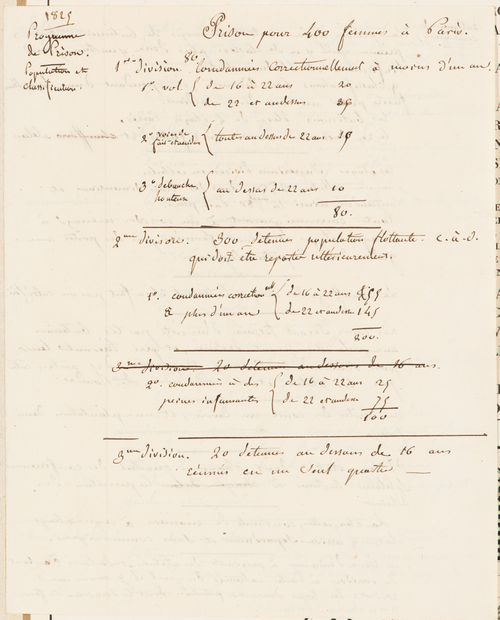 1825
Programme
de Prison.
Population et
classification.
Prison pour 400 femmes à Paris.
1re division. 80 Condamnées correctionnellement à moins d'un an.
1o. vol { de 16 à 22 ans 20
de 22 et au dessus 35
2o voies de fait et autres { toutes au dessus de 22 ans 15
3o débauche honteux { au dessus de 22 ans 10
80.
2me division. 300 détenues population flottante. c. à. d.
qui doit être repartie ultérieurement.
1o. condamnées correctionelt { de 16 à 22 ans 55
à plus d'un an { de 22 et au dessus 145
200.
3me division. 20 détenues au dessous de 16 ans.
2o. condamnées à des { de 16 à 22 ans 25
peines infamantes { de 22 et au dessus 75
100
3me division. 20 détenues au dessous de 16 ans
réunies en un seul quartier